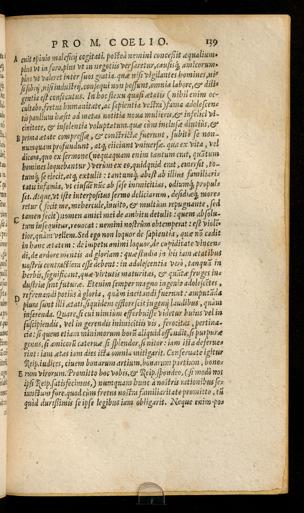 PRO M. COELIO. 139
A
tiſti paulum hæſit ad metas notitia noua mulieris, & infelici vi-
cinitate, & inſolentia voluptatum: quæ cùm incluſæ diutiùs, &
B prima ætate compreſſæ, & conſtrictæ fuerunt, ſubitò ſe non-
nunquam profundunt, atq; eiiciunt vniuerſæ. qua ex vita, vel
dicam, quo ex ſermone (nequaquam enim tantum erat, quantum
homines loquebantur) verùm ex eo, quidquid erat, emerſit, to-
tumq́; ſe eiecit, atq; extulit: tantumq́; abeſt ab illius familiaris-
tatis infamia, vt eiuſdē nūc ab ſeſe inimicitias, odiumq́; propul-
ſet. Atque, vt iſte interpoſitus ſermo deliciarum, deſidiæq́; more-
retur (fecit me, mehercule, inuito, & multùm repugnante, ſed
C tamen fecit) nomen amici mei de ambitu detulit: quem abſolu-
tum inſequitur, reuocat: nemini noſtrûm obtemperat: eſt violē-
tior, quàm vellem. Sed ego non loquor de ſapientia, quæ nō cadit
in hanc ætatem: de impetu animi loquor, de cupiditate vincen-
di, de ardore mentis ad gloriam: quæ ſtudia in his iam ætatibus
noſtris contractiora eſſe debent: in adoleſcentia verò, tanquā in
herbis, ſignificant, quæ virtutis maturitas, & quātæ fruges in-
duſtriæ ſint futuræ. Etenim ſemper magno ingenio adoleſcētes,
D refrenandi potiùs à gloria, quàm incitandi fuerunt: amputāda
plura ſunt illi ætati, ſiquidem effloreſcit ingenij laudibus, quàm
inſerenda. Quare, ſi cui nimiùm efferbuiſſe videtur huius vel in
ſuſcipiendis, vel in gerendis inimicitiis vis, ferocitas, pertina-
cia: ſi quem etiam minimorum horum aliquid offendit, ſi purpuræ
genus, ſi amicorū cateruæ, ſi ſplendor, ſi nitor: iam iſta deferue-
rint: iam ætas iam dies iſta omnia mitigarit. Conſeruate igitur
Reip. iudices, ciuem bonarum artium, bonarum partium, bono-
E rum virorum. Promitto hoc vobis, & Reip. ſpondeo, (ſi modò nos
ipſi Reip. ſatisfecimus,) numquam hunc à noſtris rationibus ſe-
iunctum fore. quod cùm fretus noſtra familiaritate promitto, tū
quòd duriſſimis ſe ipſe legibus iam obligarit. Neque enim po-